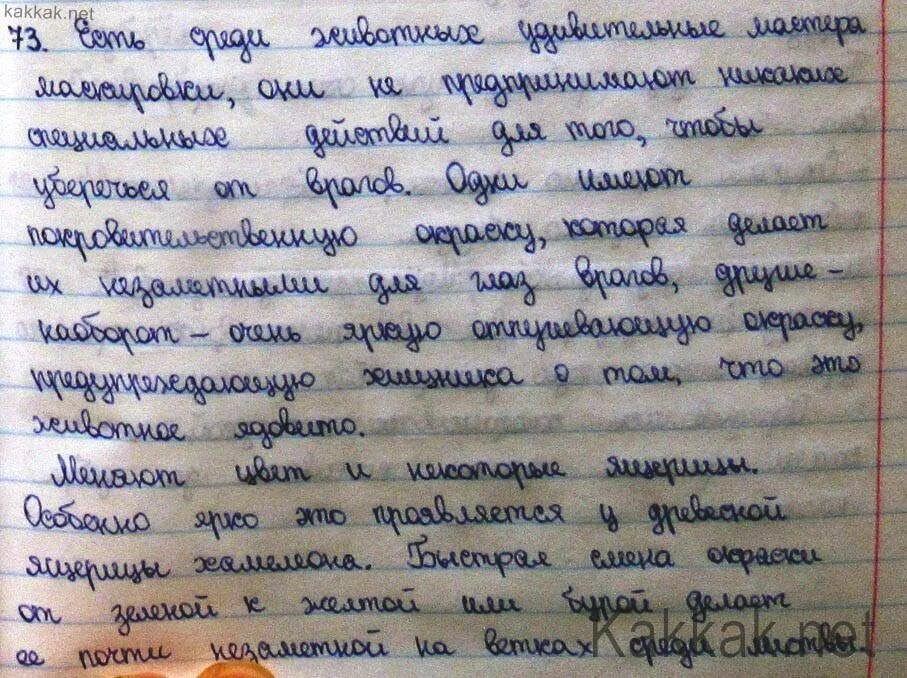 kakkak.net
73. Есть среди животных удивительные мастера
маскировки, они не предпринимают никаких
специальных действий для того, чтобы
уберечься от врагов. Одни имеют
покровительственную окраску, которая делает
их незаметными для глаз врагов, другие -
наоборот - очень яркую отпугивающую окраску,
предупреждающую хищника о том, что это
животное ядовито.
Меняют цвет и некоторые ящерицы.
Особенно ярко это проявляется у древесной
ящерицы хамелеона. Быстрая смена окраски
от зеленой к желтой или бурой делает
ее почти незаметной на ветках среди листвы.
Kakkak.net